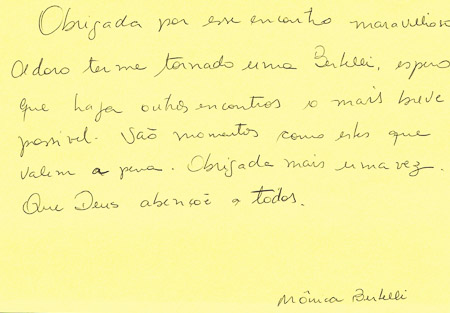 Obrigada por esse encontro maravilhoso
Adoro ter me tornado uma Bertelli, espero
que haja outros encontros o mais breve
possível. São momentos como estes que
valem a pena. Obrigada mais uma vez.
Que Deus abençoe a todos.
Mônica Bertelli